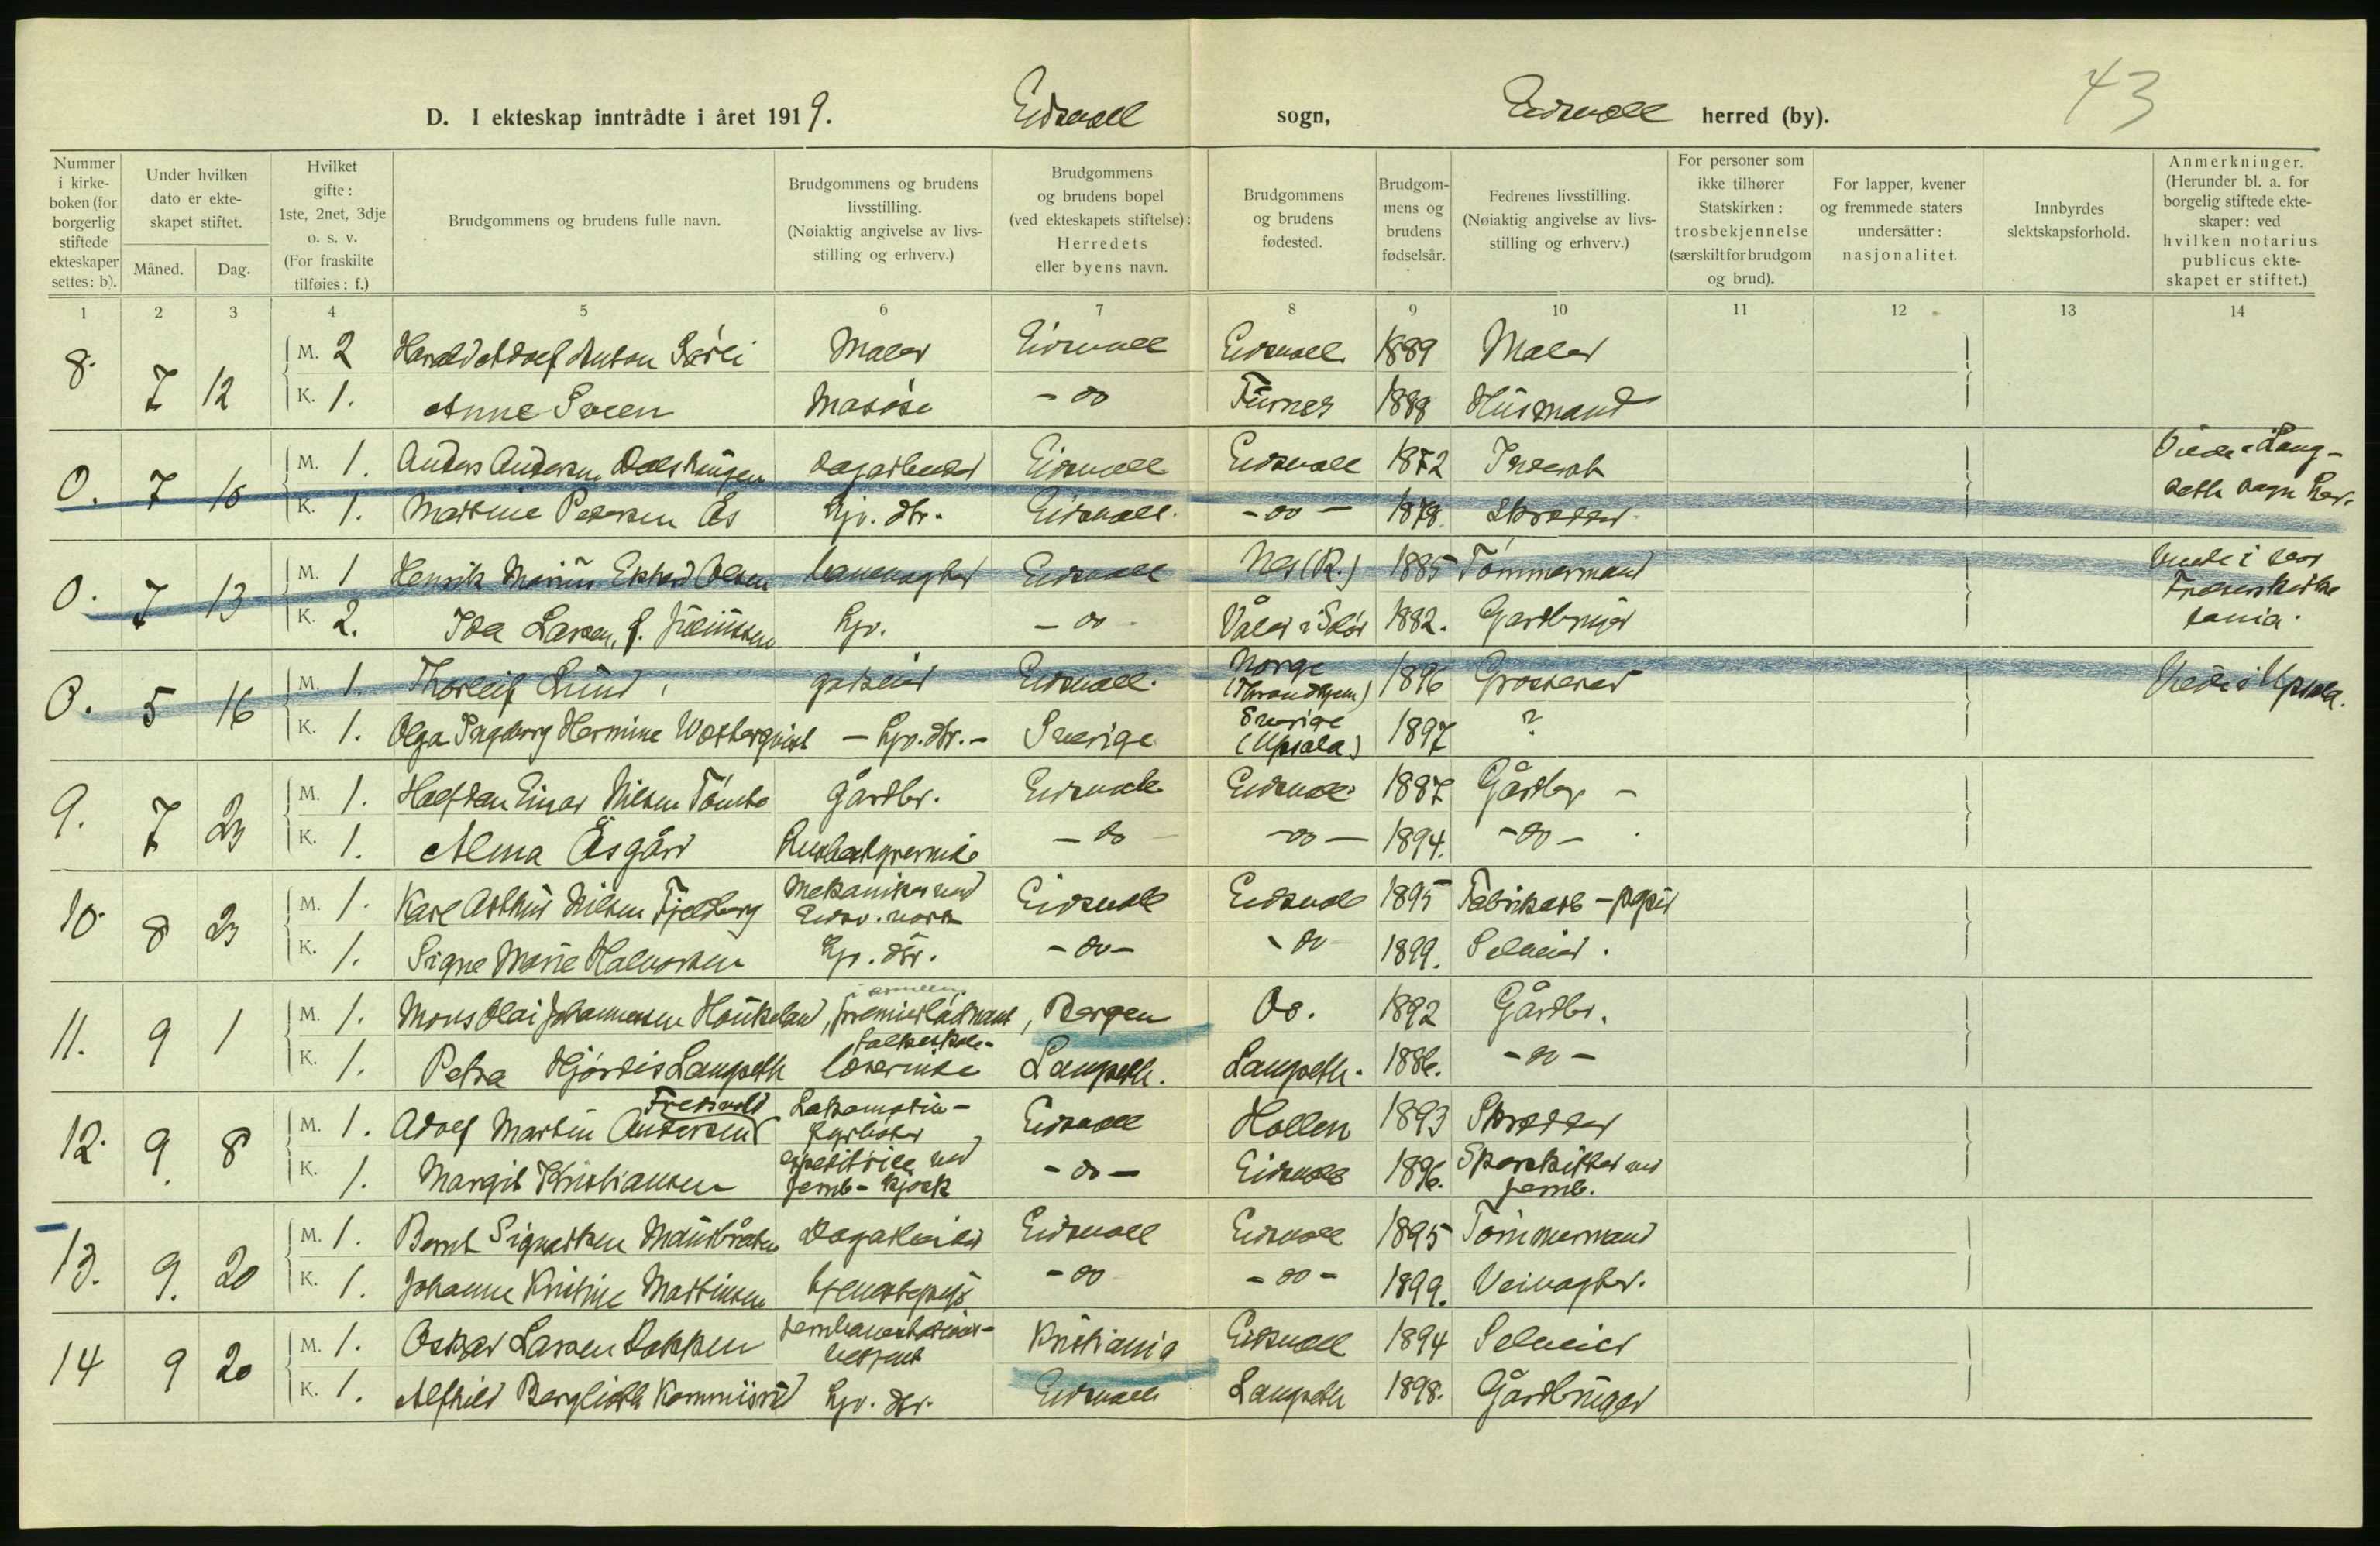 43
D. I ekteskap inntrådte i året 1919. Eidsvoll sogn, Eidsvoll herred (by).
Nummer i kirkeboken (for borgerlig stiftede ekteskaper settes: b).
Under hvilken dato er ekteskapet stiftet.
Måned. Dag.
Hvilket gifte: 1ste, 2net, 3dje o. s. v. (For fraskilte tilføies: f.)
Brudgommens og brudens fulle navn.
Brudgommens og brudens livsstilling. (Nøiaktig angivelse av livsstilling og erhverv.)
Brudgommens og brudens bopel (ved ekteskapets stiftelse): Herredets eller byens navn.
Brudgommens og brudens fødested.
Brudgommens og brudens fødselsår.
Fedrenes livsstilling. (Nøiaktig angivelse av livsstilling og erhverv.)
For personer som ikke tilhører Statskirken: trosbekjennelse (særskilt for brudgom og brud).
For lapper, kvener og fremmede staters undersåtter: nasjonalitet.
Innbyrdes slektskapsforhold.
Anmerkninger. (Herunder bl. a. for borgelig stiftede ekteskaper: ved hvilken notarius publicus ekteskapet er stiftet.)
1 2 3 4 5 6 7 8 9 10 11 12 13 14
8. 7 12 M. 2 Harald Adolf Anton Maler Eidsvoll Eidsvoll 1889 Maler
K. 1. Anne Sveen - do Furnes 1888 Husmand
0. 7 M. 1. Anders Andersen Eidsvoll Eidsvoll 1872
K. 1. Martine Pedersen Ås hjv. dtr. Eidsvoll - do - 1878. Skredder
0. 7 13 M. 1 Henrik Marius Olsen banevagter Eidsvoll Nes (R.) 1885 Tømmermand
K. 2. Ida Larsen, hjv. - do - Våler i Solør 1882. Gardbruger
0. 5 16 M. 1. Thorleif Lund Eidsvoll. Norge (Throndhjem) 1896 Grosserer Viede i Upsala.
K. 1. Olga Ingeborg Hermine Westerqvist - hjv. dtr. - Sverige Sverige (Upsala) 1897 ?
9. 7 23 M. 1. Halfdan Einar Nilsen Tømte Gårdbr. Eidsvoll Eidsvoll 1887 Gårdbr -
K. 1. Alma Åsgård - do - do - 1894. - do -
10. 8 23 M. 1. Karl Arthur Nilsen Fjeldberg Mekaniker ved Eidsv. værk Eidsvoll Eidsvoll 1895 Fabrikarb -
K. 1. Signe Marie Halvorsen hjv. dtr. - do - - do 1899.
11. 9 1 M. 1. Mons Olai Johannessen Haukeland, premierløitnant i armeen, Bergen Os. 1892 Gårdbr.
K. 1. Petra Hjørdis Langseth folkeskolelærerinde Langseth. Langseth. 1886. - do -
12. 9. 8 M. 1. Adolf Martin Andersen Lokomotivfyrbøter Eidsvoll Hollen 1893 Skredder
K. 1. Margit Kristiansen expeditrice ved jernb-kjosk - do - Eidsvoll 1896. Sporskifter ved jernb.
13. 9. 20 M. 1. Bernt Sigvartsen Dagarbeider Eidsvoll Eidsvoll 1895 Tømmermand
K. 1. Johanne Kristine Martinsen tjenestepige - do - do - 1899. Veivogter.
14 9 20 M. 1. Oskar Larsen Bakken Kristiania Eidsvoll 1894
K. 1. Alfhild Berglioth hjv. dtr. Eidsvoll Langseth 1898. Gårdbruger